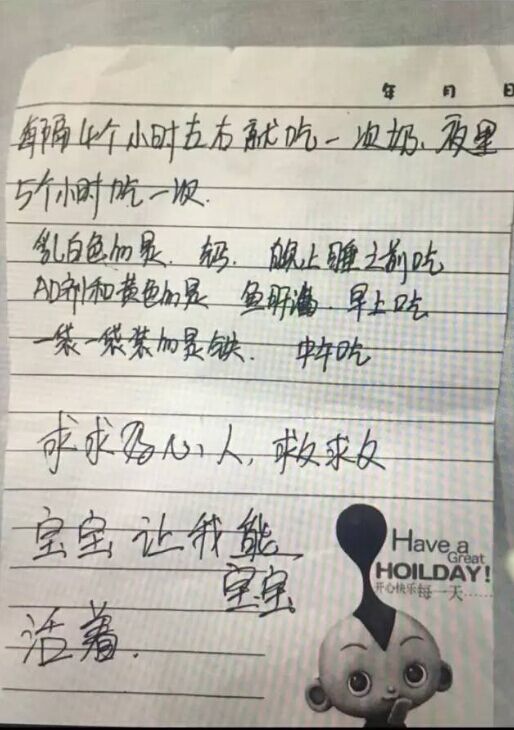 年 月 日
每隔4个小时左右就吃一次奶、夜里
5个小时吃一次.
乳白色的是. 钙. 晚上睡之前吃
AD剂和黄色的是 鱼肝油. 早上吃
一袋一袋装的是铁. 中午吃
求求好心人,救救
宝宝让我能
宝宝
活着.
Have a
Great
HOILDAY!
开心快乐每一天……